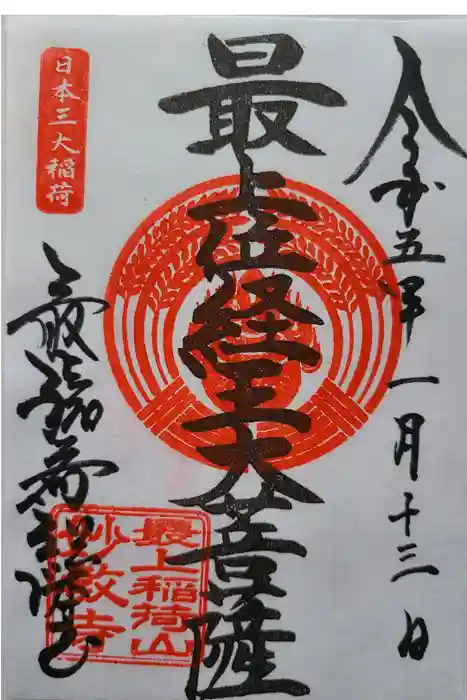 令和五年一月十三日
最上位経王大菩薩
日本三大稲荷
最上稲荷
最上稲荷山
妙教寺